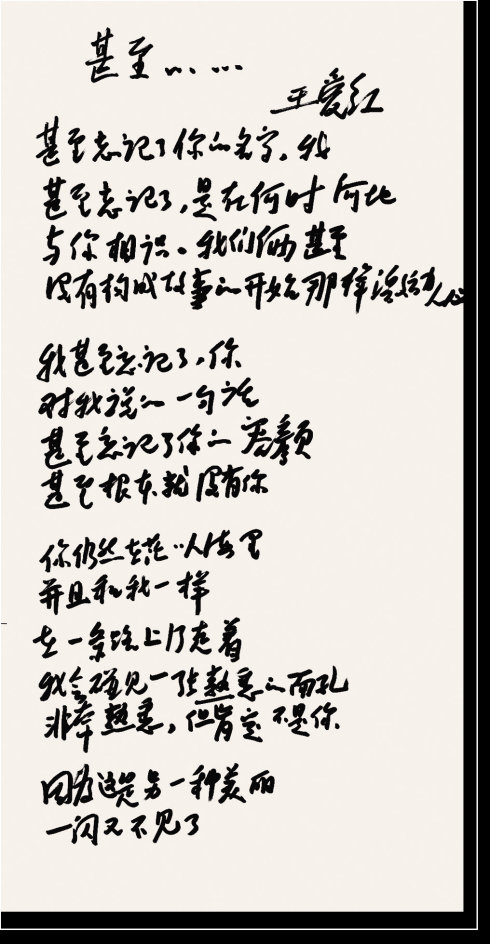 甚至……
王爱红
甚至忘记了你的名字,我
甚至忘记了,是在何时何地
与你相识。我们俩甚至
没有构成故事的开始那样激动人心
我甚至忘记了,你
对我说的一句话
甚至忘记了你的容颜
甚至根本就没有你
你仍然在茫茫人海里
并且和我一样
在一条路上行走着
我会碰见一张熟悉的面孔
非常熟悉,但肯定不是你
因为这是另一种美丽
一闪又不见了